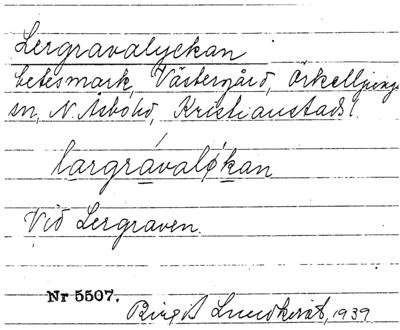 Lergravalyckan
betesmark, Västergård, Örkelljunga
sn, N. Åsbo hd, Kristianstads l.
largrávaløkan
Vid Lergraven.
Nr 5507.
Birgit Lundkvist, 1939